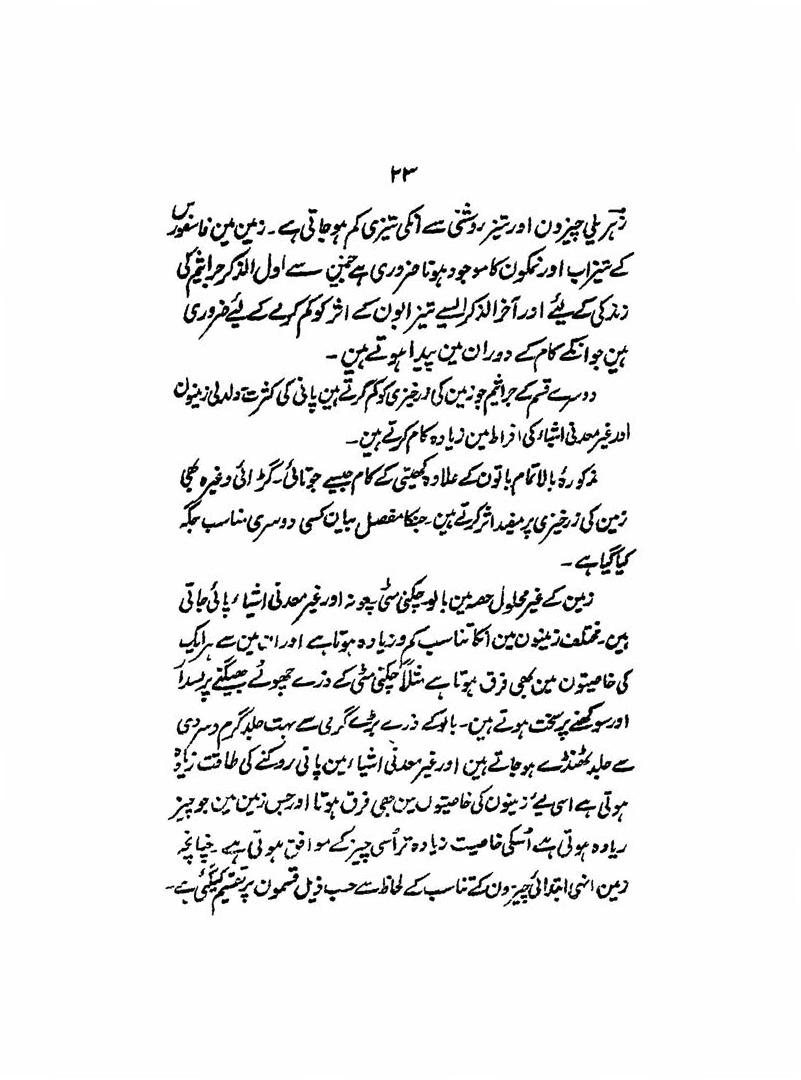 ۲۳
زہریلی چیزون اور تیز روشنی سے انکی تیزی کم ہو جاتی ہے۔ زمین مین فاسفورس
کے تیزاب اور نمکون کا موجود ہونا ضروری ہے جنمین سے اول الذکر جراثیم کی
زندگی کے لیئے اور آخر الذکر ایسے تیزابون کے اثر کو کم کرنے کے لیئے ضروری
ہین جو انکے کام کے دوران مین پیدا ہوتے ہین ۔
دوسرے قسم کے جراثیم جو زمین کی زرخیزی کو کم کرتے ہین پانی کی کثرت دلدلی زمینون
اور غیر معدنی اشیاء کی افراط مین زیادہ کام کرتے ہین۔
مذکورۂ بالا تمام باتون کے علاوہ کھیتی کے کام جیسے جوتائی۔ گڑائی وغیرہ بھی
زمین کی زرخیزی پر مفید اثر کرتے ہین۔ جنکا مفصل بیان کسی دوسری مناسب جگہ
کیا گیا ہے ۔
زمین کے غیر محلول حصہ مین بالو۔ چکنی مٹی چونہ اور غیر معدنی اشیاء پائی جاتی
ہین۔ مختلف زمینون مین انکا تناسب کم و زیادہ ہوتا ہے اور ان مین سے ہر ایک
کی خاصیتون مین بھی فرق ہوتا ہے مثلاً چکنی مٹی کے ذرے چھوٹے بھیگنے پر لسدار
اور سوکھنے پر سخت ہوتے ہین۔ بالو کے ذرے بڑے گرمی سے بہت جلد گرم و سردی
سے جلد ٹھنڈے ہو جاتے ہین اور غیر معدنی اشیاء مین پانی روکنے کی طاقت زیادہ
ہوتی ہے اسی لیئے زمینون کی خاصیتون مین بھی فرق ہوتا اور جس زمین مین جو چیز
زیادہ ہوتی ہے اُسکی خاصیت زیادہ تر اُسی چیز کے موافق ہوتی ہے ۔ چنانچہ
زمین انہی ابتدائی چیزون کے تناسب کے لحاظ سے حسب ذیل قسمون پر تقسیم کیگئی ہے۔